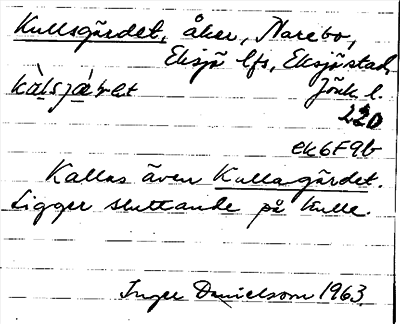 Kullsgärdet, åker, Narebo,
Eksjö lfs, Eksjö stad,
Jönk. l.
220
ek6F9b
Kallas även Kullagärdet.
Ligger sluttande på kulle.
Inger Danielsson 1963